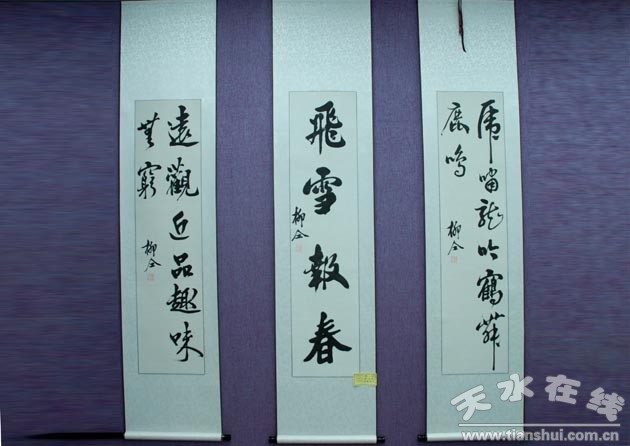 虎啸龍吟鶴舞
鹿鳴
柳合
飛雪報春
柳合
遠觀近品趣味
無窮
柳合
天水在线
www.tianshui.com.cn